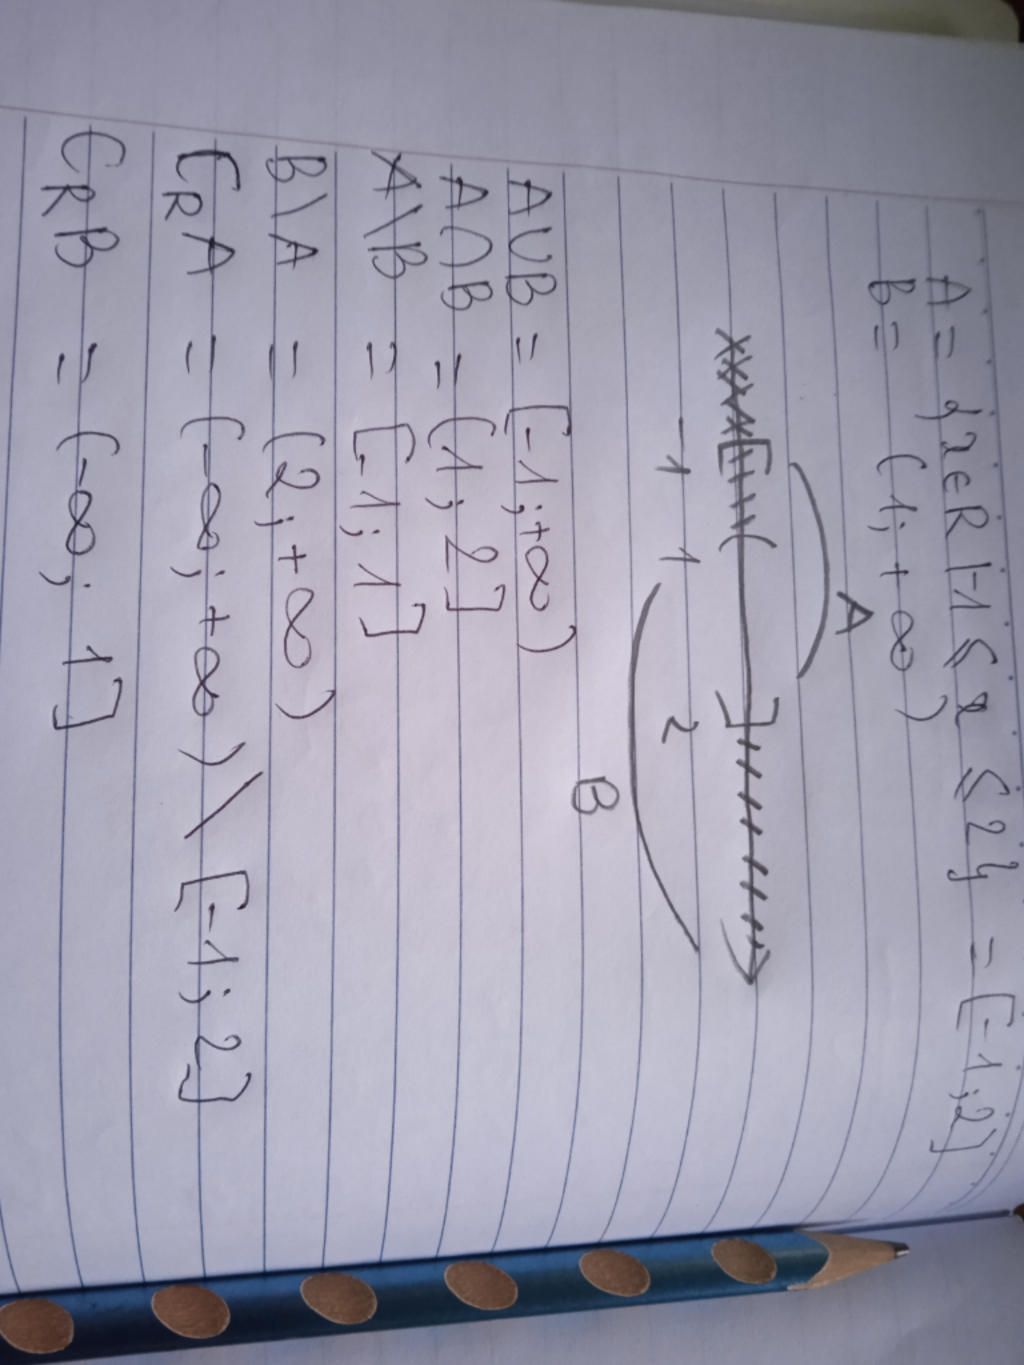 A = {x∈R|-1 ≤ x ≤ 2} = [-1; 2]
B = (1; +∞)
A
-1 1 2
B
A∪B = [-1; +∞)
A∩B = (1; 2]
A\B = [-1; 1]
B\A = (2; +∞)
C_R A = (-∞; +∞) \ [-1; 2]
C_R B = (-∞; 1]